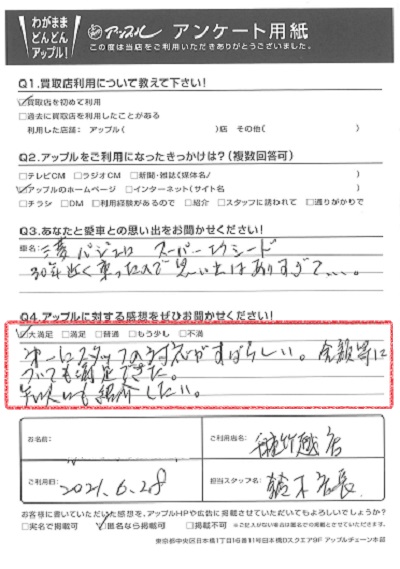 わがまま
どんどん
アップル!
アップル アンケート用紙
この度は当店をご利用いただきありがとうございました。
Q1.買取店利用について教えて下さい!
☑買取店を初めて利用
□過去に買取店を利用したことがある
利用した店舗: アップル( )店 その他( )
Q2.アップルをご利用になったきっかけは?(複数回答可)
□テレビCM □ラジオCM □新聞・雑誌(媒体名/ )
☑アップルのホームページ □インターネット(サイト名 )
□チラシ □DM □利用経験があるので □紹介 □スタッフに誘われて □通りがかりで
Q3.あなたと愛車との思い出をお聞かせください!
車名: 三菱 パジェロ スーパーエクシード
30年近く乗ったので思い出はありすぎて、、、。
Q4.アップルに対する感想をぜひお聞かせください!
☑大満足 □満足 □普通 □もう少し □不満
第一にスタッフの対応がすばらしい。金額等に
ついても満足できた。
知人にも紹介したい。
お名前:
ご利用店名:
竹越店
ご利用日:
2021.6.28
担当スタッフ名:
鈴木店長
お客様に書いていただいた感想を、アップルHPや広告に掲載させていただいてもよろしいでしょうか?
□実名で掲載可 ☑匿名なら掲載可 □掲載不可 ※ご記入がない場合は匿名での掲載とさせていただきます。
東京都中央区日本橋1丁目16番11号日本橋Dスクエア9F アップルチェーン本部